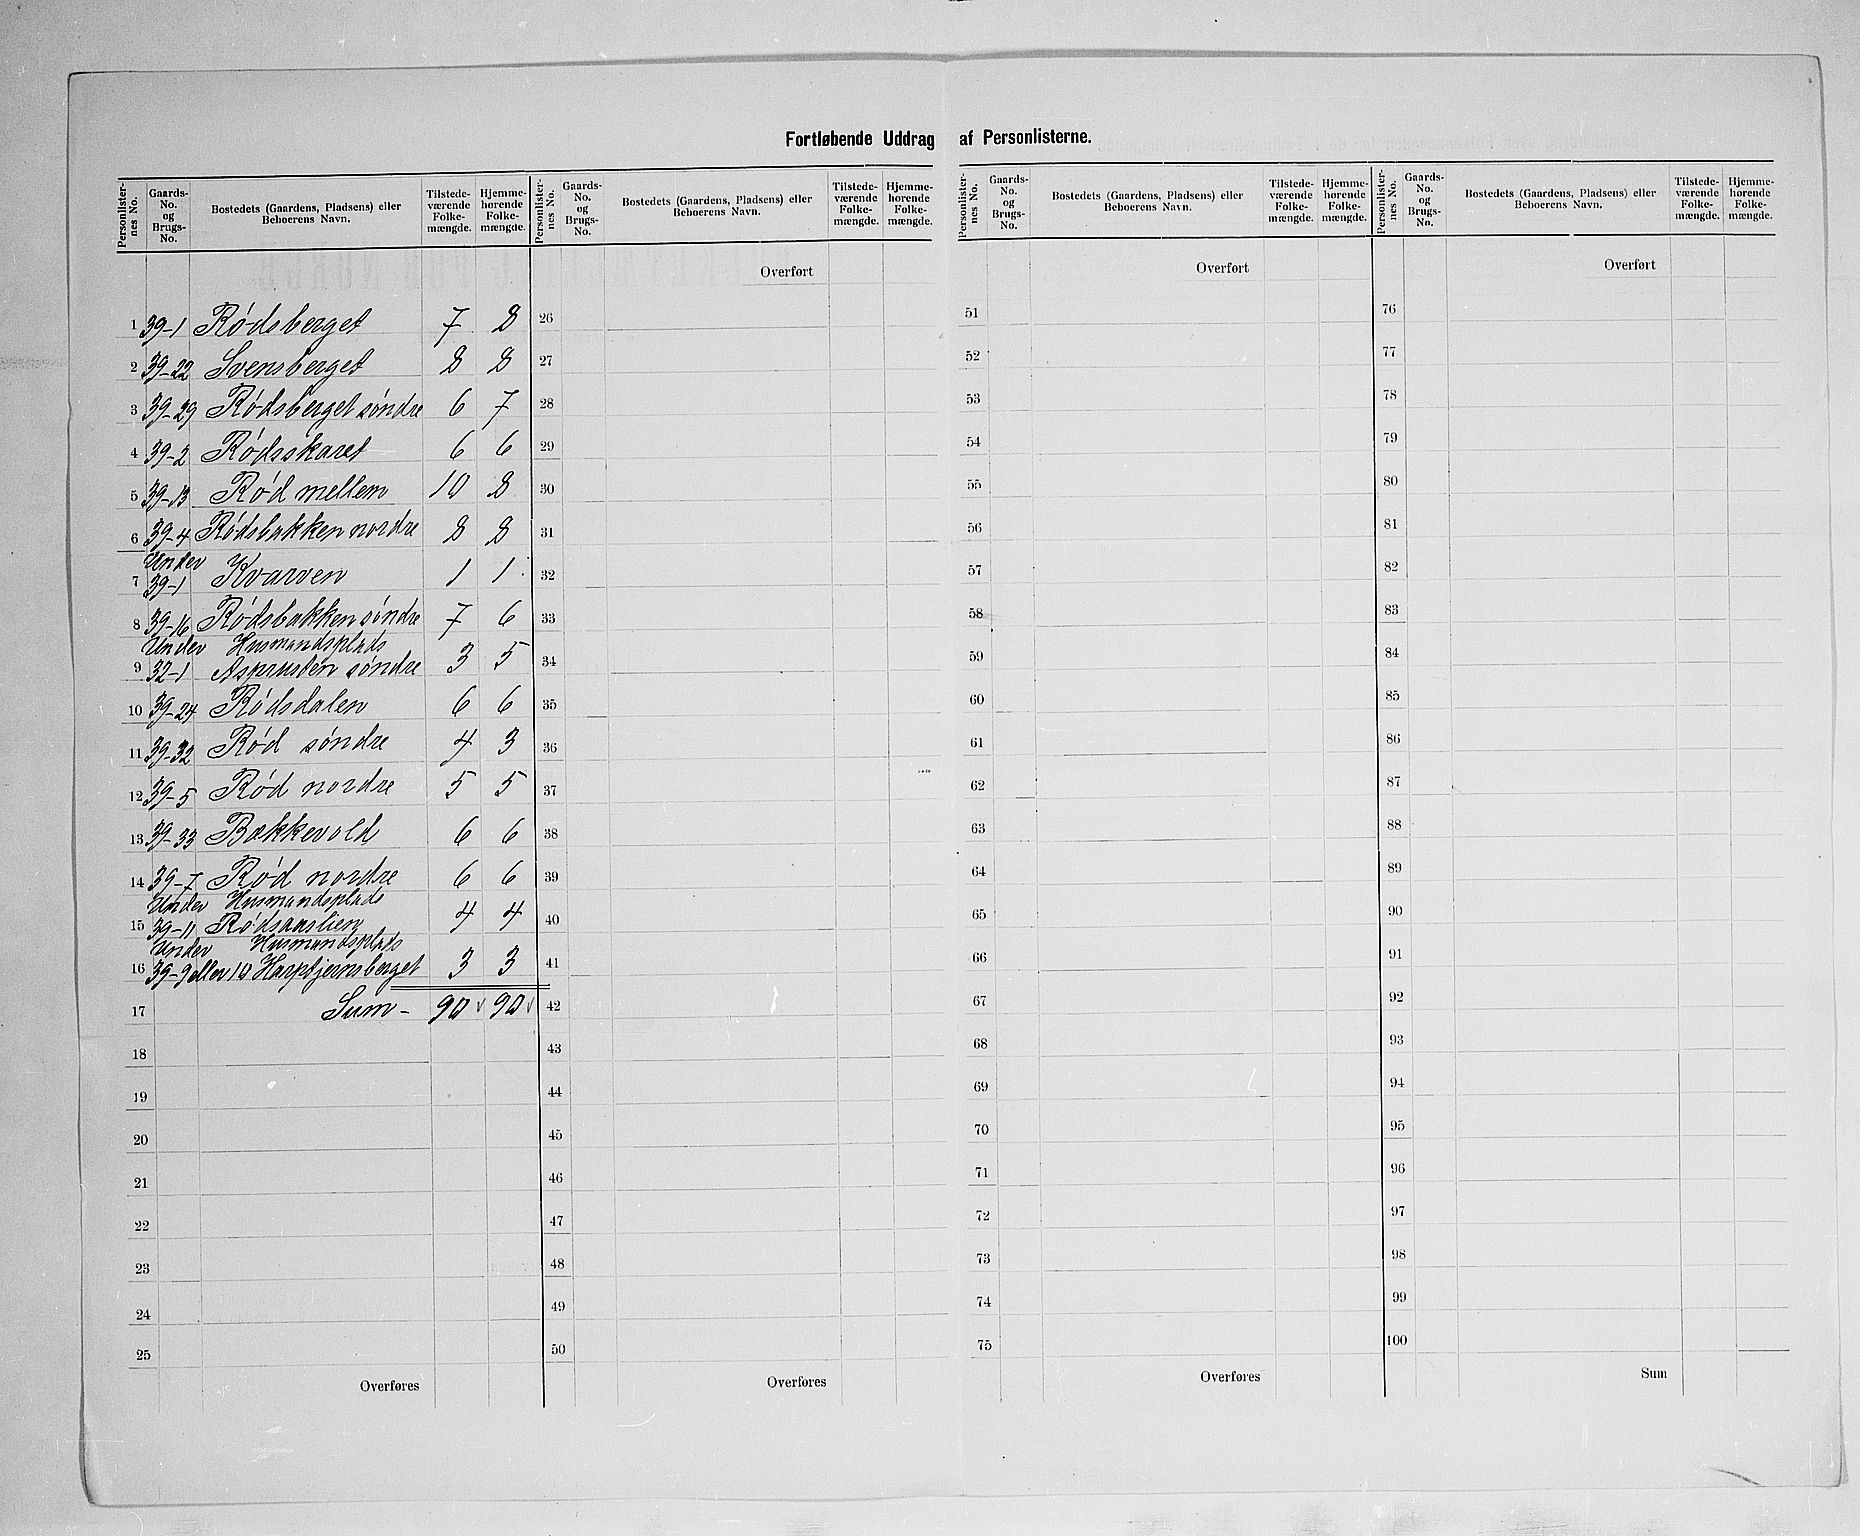 Fortløbende Uddrag af Personlisterne.
Personlister-nes No. Gaards-No. og Brugs-No. Bostedets (Gaardens, Pladsens) eller Beboerens Navn. Tilstede-værende Folke-mængde. Hjemme-hørende Folke-mængde.
Personlister-nes No. Gaards-No. og Brugs-No. Bostedets (Gaardens, Pladsens) eller Beboerens Navn. Tilstede-værende Folke-mængde. Hjemme-hørende Folke-mængde.
Personlister-nes No. Gaards-No. og Brugs-No. Bostedets (Gaardens, Pladsens) eller Beboerens Navn. Tilstede-værende Folke-mængde. Hjemme-hørende Folke-mængde.
Personlister-nes No. Gaards-No. og Brugs-No. Bostedets (Gaardens, Pladsens) eller Beboerens Navn. Tilstede-værende Folke-mængde. Hjemme-hørende Folke-mængde.
Overført Overført Overført
1 39-1 Rødsberget 7 8 26 51 76
2 39-22 Svensberget 8 8 27 52 77
3 39-29 Rødsberget søndre 6 7 28 53 78
4 39-2 Rødsskaret 6 6 29 54 79
5 39-13 Rød mellem 10 8 30 55 80
6 39-4 Rødsbakken nordre 8 8 31 56 81
Under
7 39-1 Kvarven 1 1 32 57 82
8 39-16 Rødsbakken søndre 7 6 33 58 83
Under Husmandsplads
9 32-1 Asprusten søndre 3 5 34 59 84
10 39-24 Rødsdalen 6 6 35 60 85
11 39-32 Rød søndre 4 3 36 61 86
12 39-5 Rød nordre 5 5 37 62 87
13 39-33 Bækkevold 6 6 38 63 88
14 39-7 Rød nordre 6 6 39 64 89
Under Husmandsplads
15 39-11 Rødsaaslien 4 4 40 65 90
Under Husmandsplads
16 39-9 eller 10 Harptjernsberget 3 3 41 66 91
17 Sum - 90 90 42 67 92
18 43 68 93
19 44 69 94
20 45 70 95
21 46 71 96
22 47 72 97
23 48 73 98
24 49 74 99
25 50 75 100
Overføres Overføres Overføres Sum